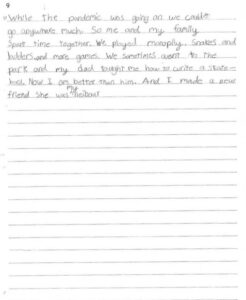 9
"While the pandemic was going on we could't
go anywhere much. So me and my family
Spent time together. We played monoply, Snakes and
ladders and more games. We sometimes went to the
park and my dad taught me how to
board. Now I am better than him. And I made a new
friend she was my neibour